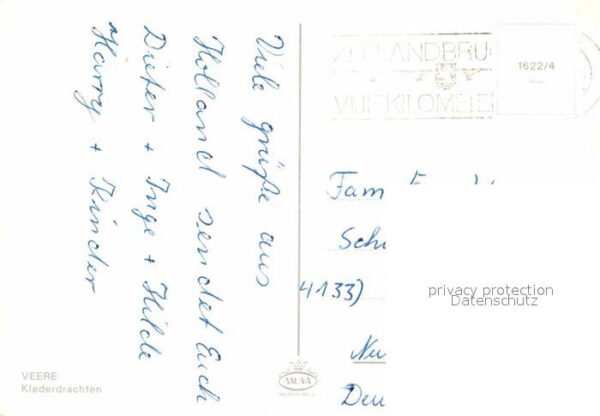 Viele grüße aus
Holland sendet Euch
Dieter + Inge + Hilde
Harry + Kinder
VEERE
Klederdrachten
ZEELANDBRUG
VIJF KILOMETER
1622/4
Fam
Sch
4133)
Neu
Deu
MUVA
privacy protection
Datenschutz